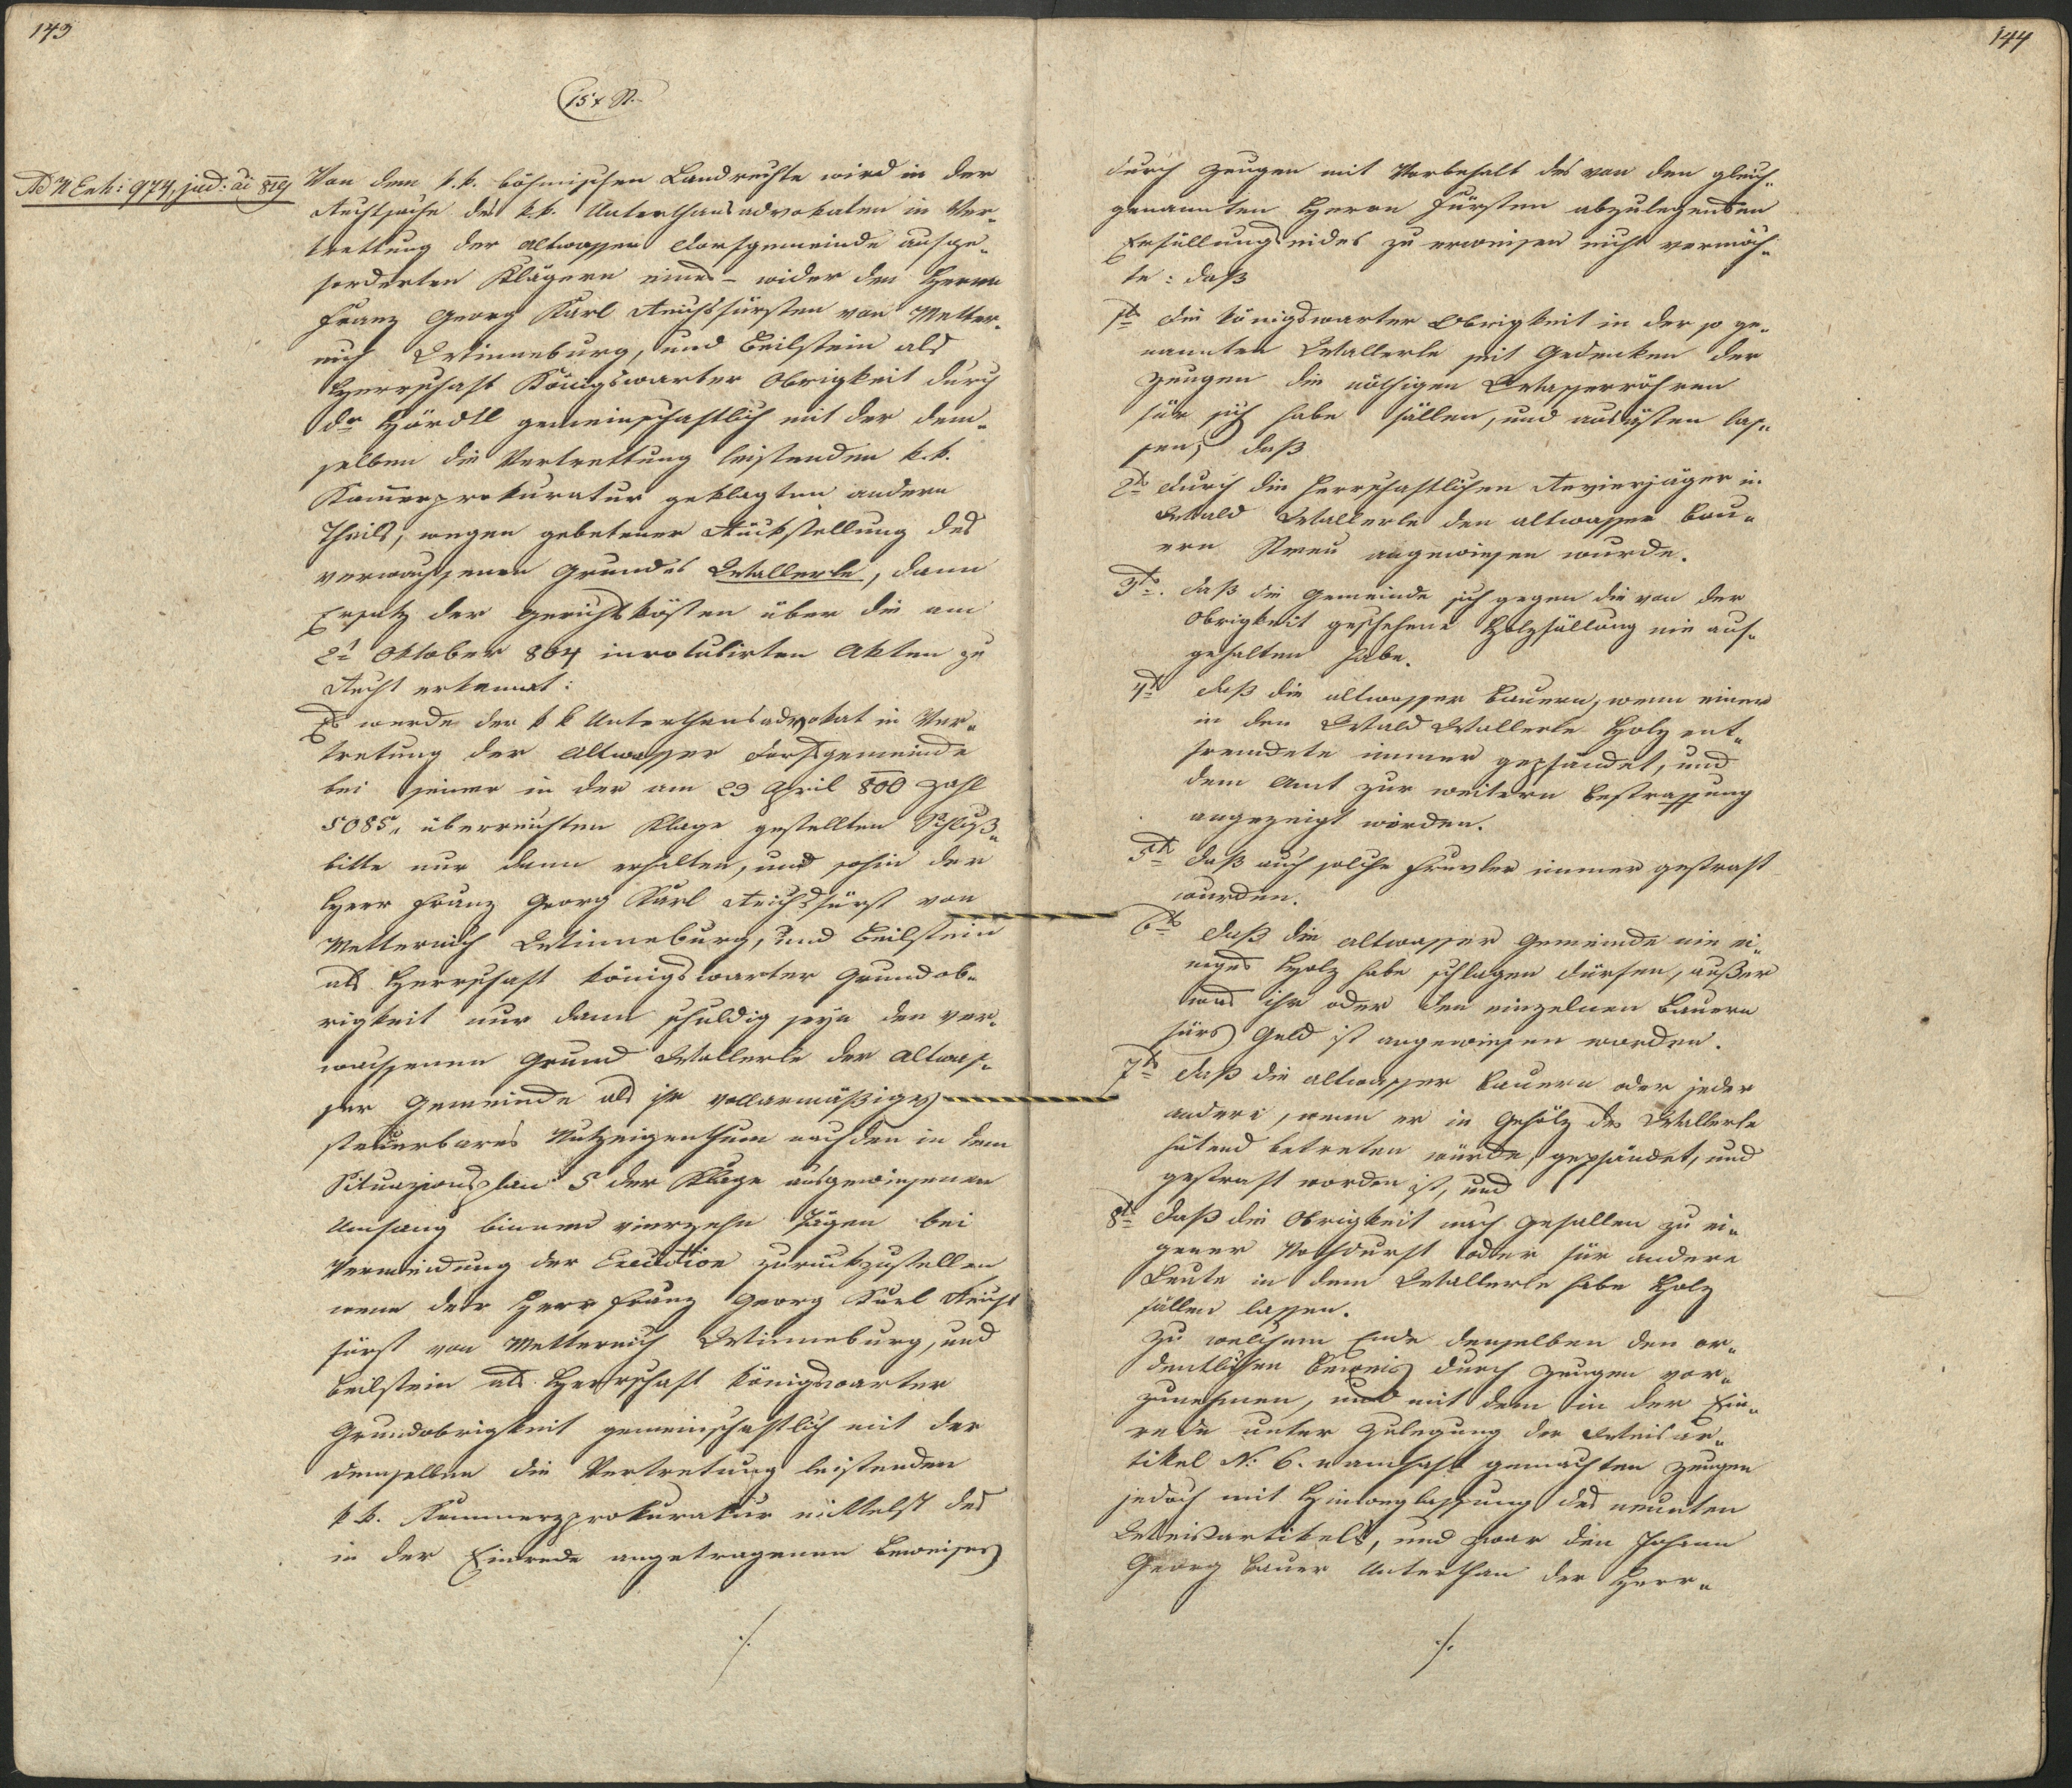 143
15 x R.
Ad N Exh: 974, jud: ai 819
Von dem k. k. böhmischen Landrechte wird in der
Rechtssache des k. k. Unterthansadvokaten in Ver„
trettung der altwasser Dorfgemeinde aufge„
forderten Klägern eines – wider den Herrn
Franz Georg Karl Reichsfürsten von Metter„
nich Winneburg, und Beilstein als
Herrschaft Königswarter Obrigkeit durch
Dr Hördtl gemeinschaftlich mit der dem„
selben die Vertrettung leistenden k. k.
Kammerprokuratur geklagten andern
Theils, wegen gebetener Rückstellung des
verwachsenen Grundes Wallerle, dann
Ersatz der Gerichtskösten über die am
2t Oktober 804 inrotulirten Akten zu
Recht erkannt:
Es werde der k k Unterthansadvokat in Ver„
tretung der Altwasser Dorfsgemeinde
bei seiner in der am 29 April 800 Zahl
5085„ überreichten Klage gestellten Schluß„
bitte nur dann erhalten, und sohin der
Herr Franz Georg Karl Reichsfürst von
Metternich Winneburg, und Beilstein
als Herrschaft Königswarter Grundob„
rigkeit nur dann schuldig seyn den ver„
wachsenen Grund Wallerle der Altwas„
ser Gemeinde als ihr vollarmäßiges
steuerbares Nutzeigenthum nach den in dem
Situazionsplan 5 der Klage ausgewiesenen
Umfang binnen vierzehn Tägen bei
Vermeidung der Execution zurückzustellen
wenn der Herr Franz Georg Karl Reichs
fürst von Metternich Winneburg, und
Beilstein als Herrschaft Königswarter
Grundobrigkeit gemeinschaftlich mit der
demselben die Vertretung leistenden
k k. Kammerprokuratur mittelst des
in der Einrede angetragenen Beweises
./.
144
durch Zeugen mit Vorbehalt des von den gleich„
genannten Herrn Fürsten abzulegenden
Erfüllungseides zu erweisen nicht vermöch„
te: daß
1t die Königswarter Obrigkeit in der so ge„
nannten Wallerle seit Gedenken der
Zeugen die nöthigen Wasserröhren
für sich habe fällen, und ausästen las„
sen, daß
2t durch die herrschaftlichen Revierjäger in
Wald Wallerle den altwasser Bau„
ern Streu angewiesen wurde.
3t. daß die Gemeinde sich gegen die von der
Obrigkeit geschehene Holzfällung nie auf„
gehalten habe.
4t daß die altwasser Bauern, wenn einer
in den Wald Wallerle Holz ent„
fremdete immer gepfändet, und
dem Amt zur weitern Bestraffung
angezeigt wörden.
5t daß auch solche Frevler immer gestraft
wurden.
6t daß die altwasser Gemeinde nie ei„
niges Holz habe schlagen dürfen, außer
was ihr oder den einzelnen Bauern
fürs Geld ist angewiesen worden.
7t daß die altwasser Bauern oder jeder
andere, wenn er in Gehölz des Wallerle
hütend betreten würde, gepfändet, und
gestraft worden ist, und
8t daß die Obrigkeit nach Gefallen zu ei„
gener Nothdurft oder für andere
Leute in dem Wallerle habe Holz
fällen lassen.
Zu welchem Ende denselben den or„
dentlichen Beweis durch Zeugen vor„
zunehmen, und mit dem in der Ein„
rede unter Zulegung der Weisar„
tikel N: 6. namhaft gemachten Zeugen
jedoch mit Hinweglassung des neunten
Weisartikels, und zwar den Johann
Georg Bauer Unterthan der Herr„
./.